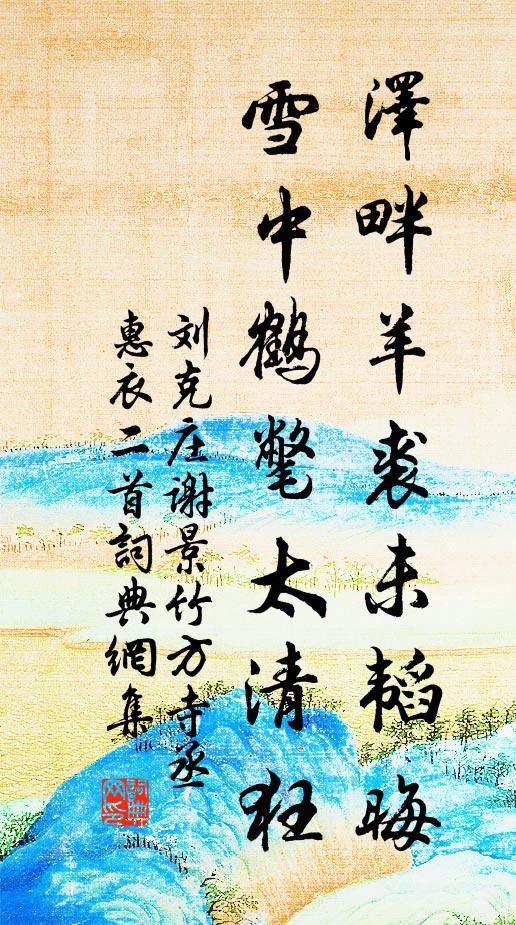 澤畔羊裘未韜晦
雪中鶴氅太清狂
刘克庄谢景竹方寺丞
惠衣二首詞典網集